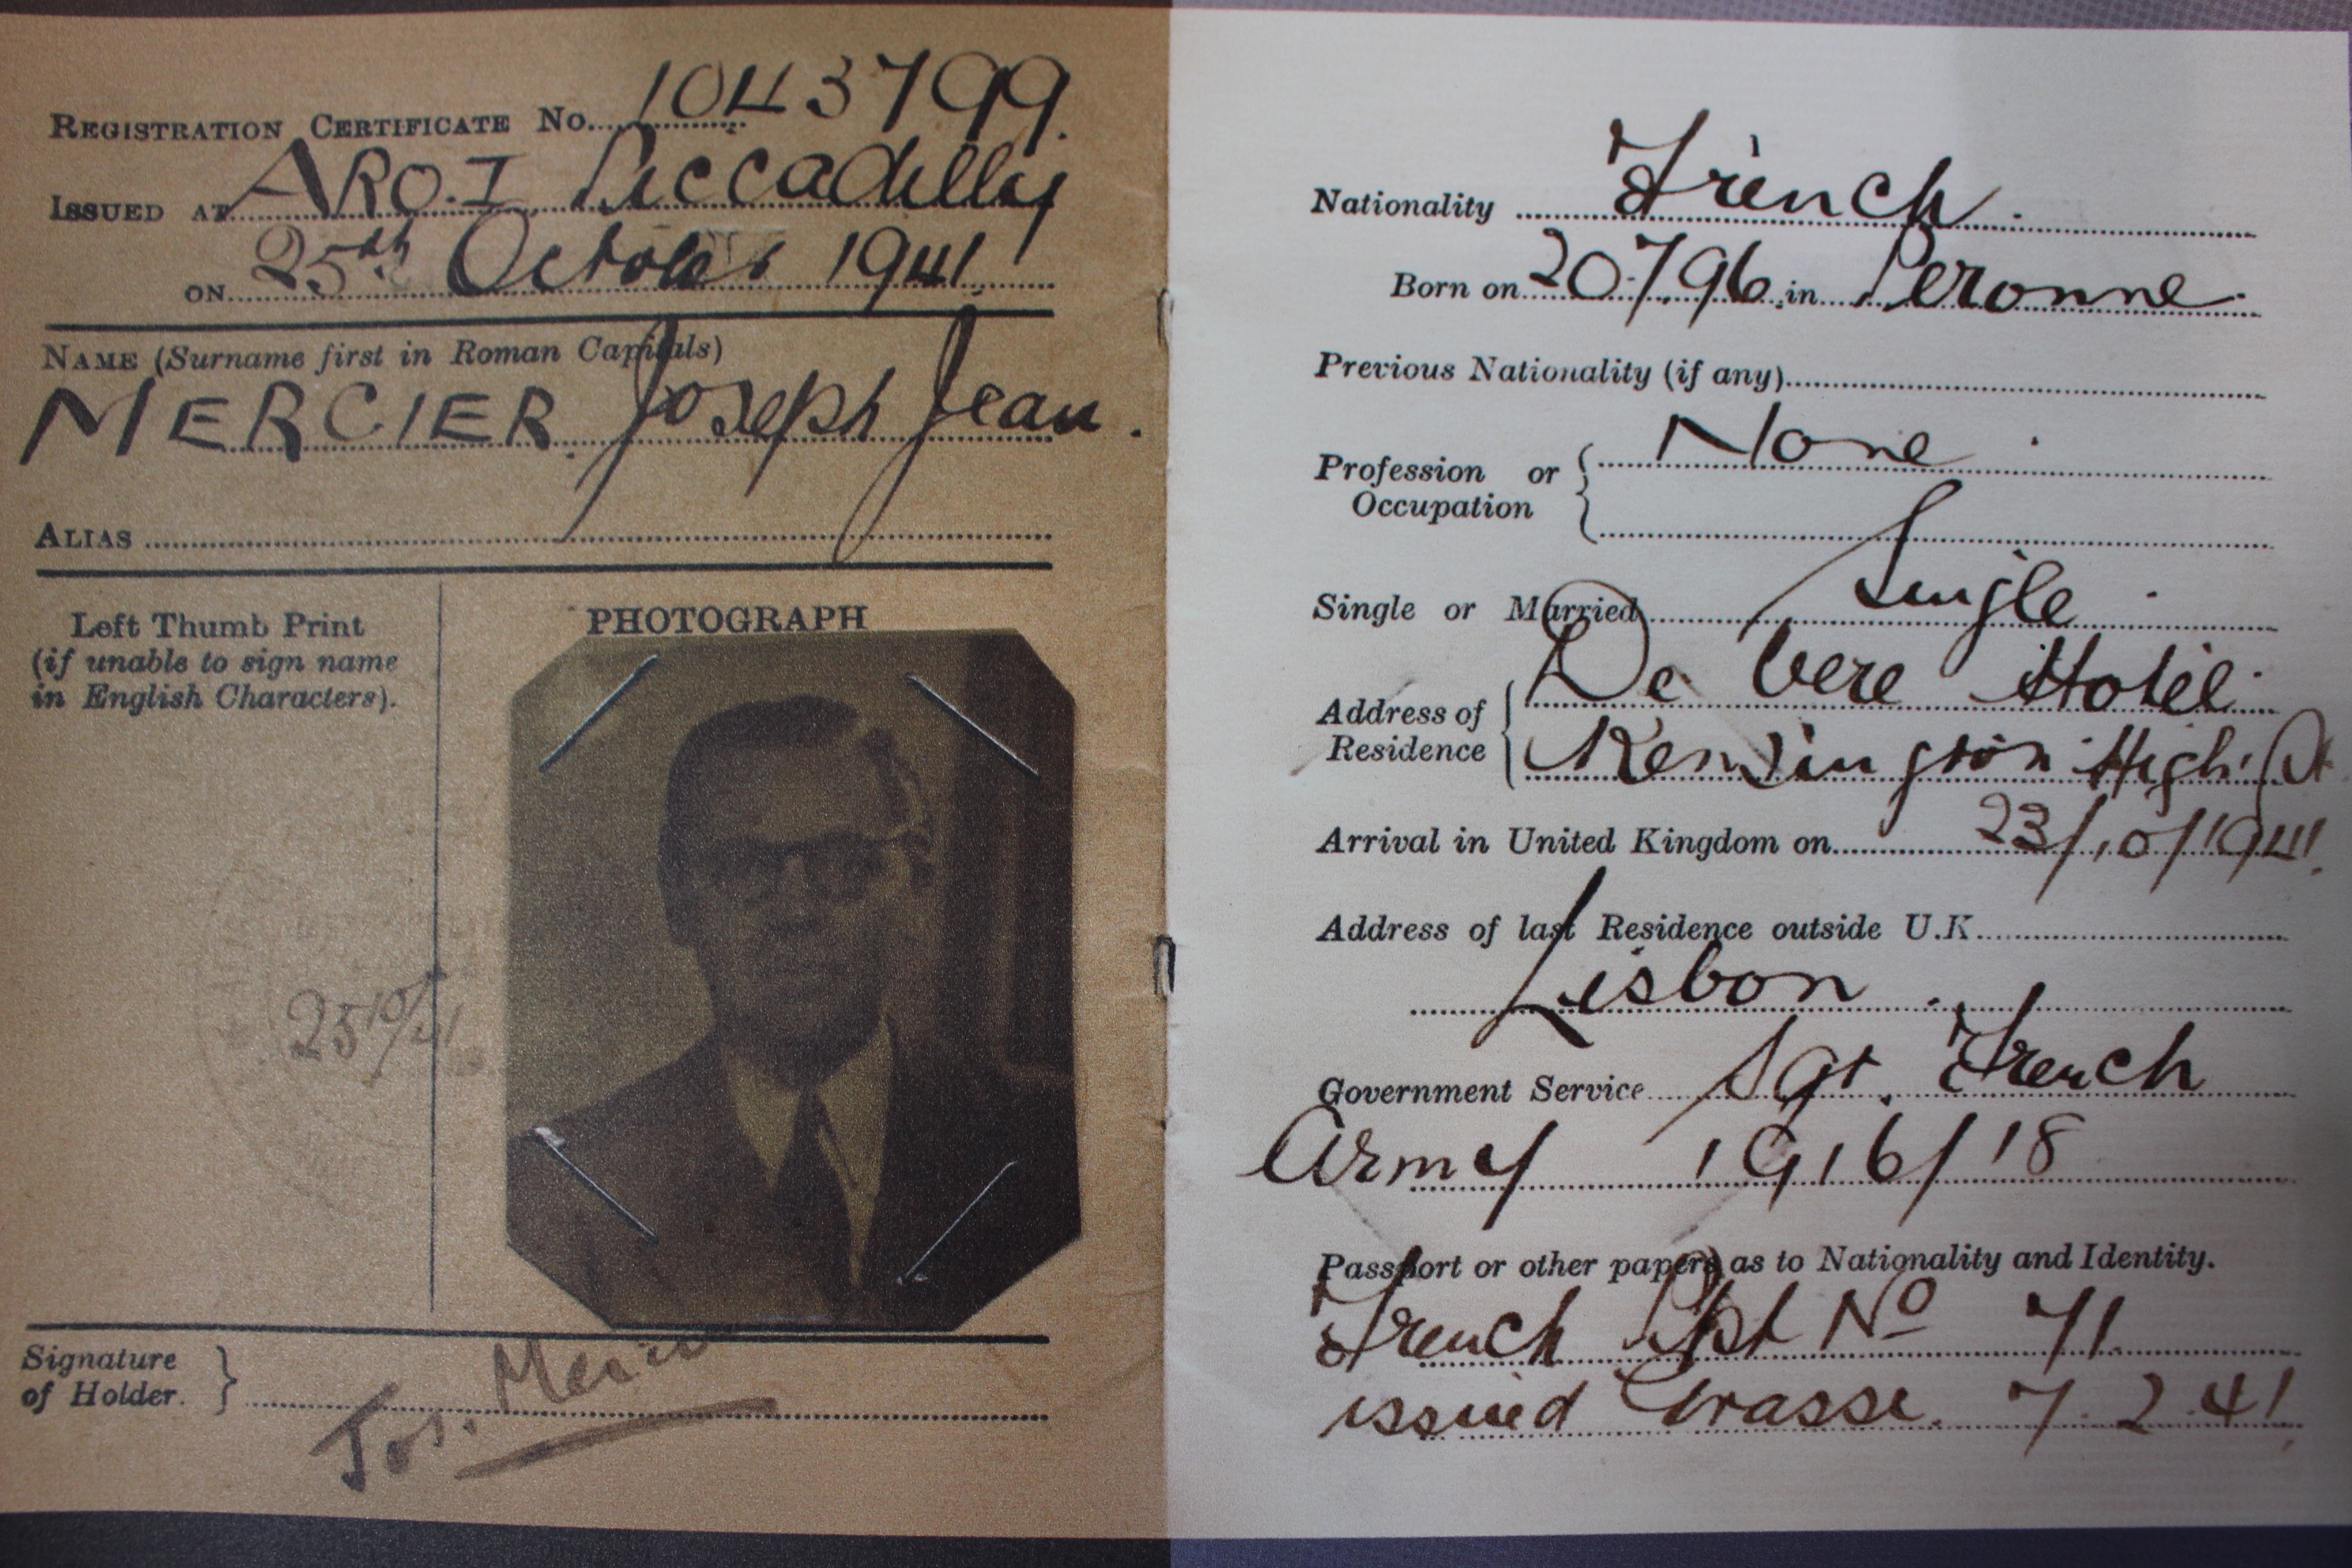 REGISTRATION CERTIFICATE No. 1043799.
ISSUED AT ARO.I Piccadilly
ON 25th October 1941.
NAME (Surname first in Roman Capitals)
MERCIER. Joseph Jean.
ALIAS
Left Thumb Print
(if unable to sign name
in English Characters).
PHOTOGRAPH
25/10/41
Signature
of Holder.
Jos. Mercier
Nationality French.
Born on 20.7.96. in Peronne.
Previous Nationality (if any)
Profession or
Occupation
None.
Single or Married Single.
Address of
Residence
De Vere Hotel.
Kensington High St
Arrival in United Kingdom on 23/10/1941.
Address of last Residence outside U.K.
Lisbon.
Government Service Sgt. French
Army 1916/18
Passport or other papers as to Nationality and Identity.
French Ppt No 71.
issued Grasse. 7.2.41.